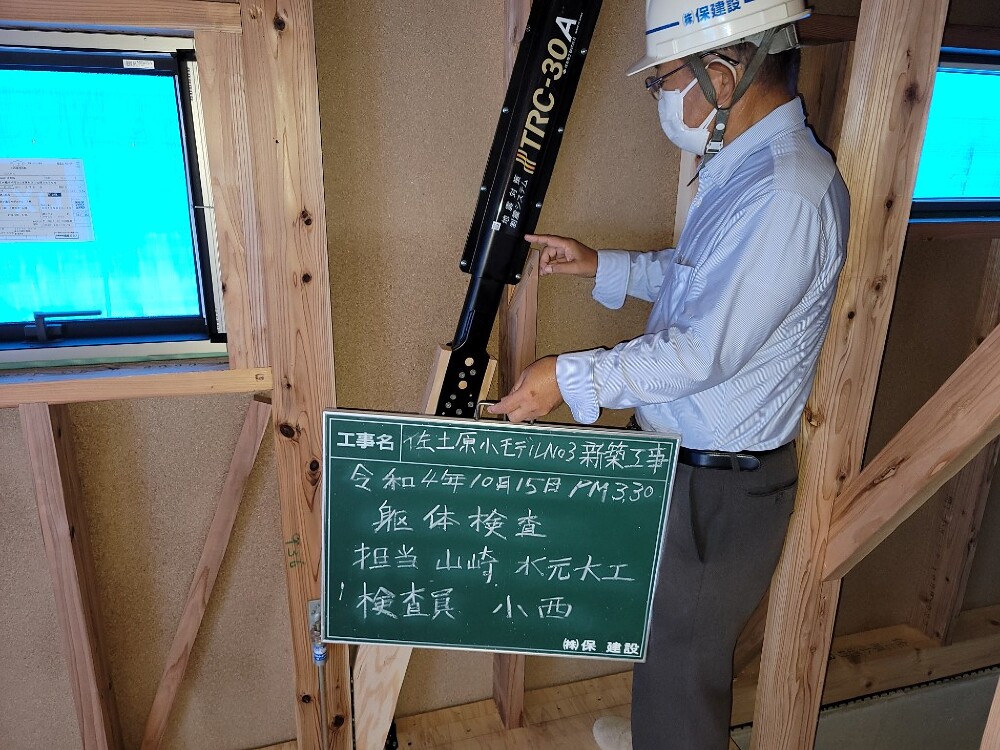 (株)保建設
TRC-30A
地震対策
制震システム
工事名 佐土原小モデルNo3新築工事
令和4年10月15日 PM3.30
躯体検査
担当 山崎 水元大工
検査員 小西
(株)保 建設